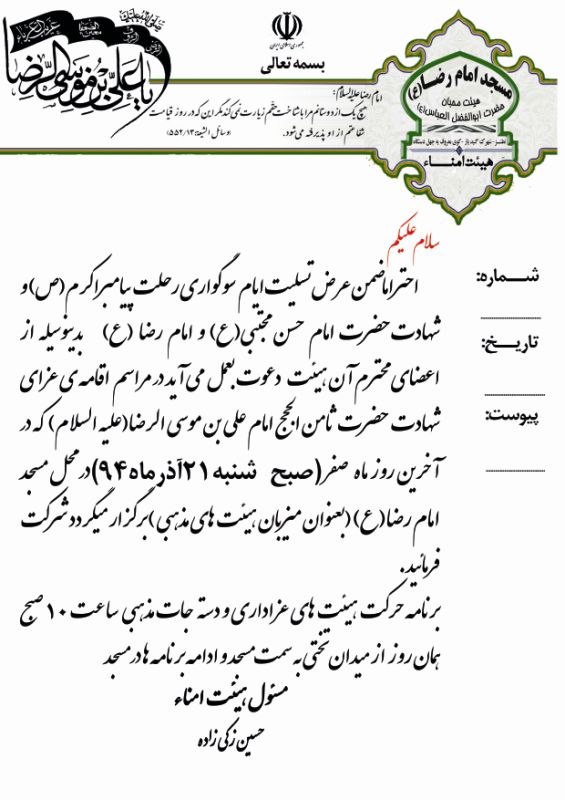 یا علی بن موسی الرضا
جمهوری اسلامی ایران
بسمه تعالی
امام رضا علیه‌السلام:
هیچ یک از دوستانم مرا با شناخت حقم زیارت نمی کند مگر این که در روز قیامت
شفاعتم از او پذیرفته می‌شود. (وسائل الشیعة/۱۳:۵۵۲)
مسجد امام رضا(ع)
هیئت محبان
حضرت ابوالفضل العباس(ع)
هیئت امناء
شماره:
تاریخ:
پیوست:
سلام علیکم
احتراما ضمن عرض تسلیت ایام سوگواری رحلت پیامبر اکرم (ص) و
شهادت حضرت امام حسن مجتبی(ع) و امام رضا (ع) بدینوسیله از
اعضای محترم آن هیئت دعوت بعمل می آید در مراسم اقامه ی عزای
شهادت حضرت ثامن الحجج امام علی بن موسی الرضا(علیه السلام) که در
آخرین روز ماه صفر(صبح شنبه ۲۱آذر ماه ۹۴)در محل مسجد
امام رضا(ع) (بعنوان میزبان هیئت های مذهبی )برگزار میگردد شرکت
فرمائید.
برنامه حرکت هیئت های عزاداری و دسته جات مذهبی ساعت ۱۰ صبح
همان روز از میدان تختی به سمت مسجد و ادامه برنامه ها در مسجد
مسئول هیئت امناء
حسین زکی زاده